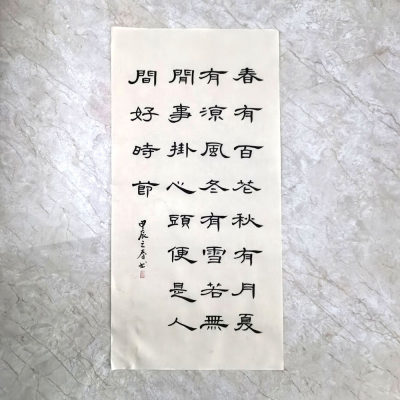 春有百花秋有月夏
有涼風冬有雪若無
閒事掛心頭便是人
間好時節
甲辰之春書